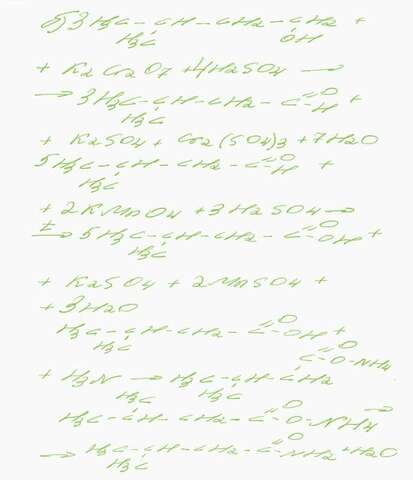 б) 3 H3C - CH - CH2 - CH2 +
H3C OH
+ K2Cr2O7 + 4H2SO4 →
→ 3H3C - CH - CH2 - C =O -H +
H3C
+ K2SO4 + Cr2(SO4)3 + 7H2O
5H3C - CH - CH2 - C =O -H +
H3C
+ 2KMnO4 + 3H2SO4 →
t → 5H3C - CH - CH2 - C =O OH +
H3C
+ K2SO4 + 2MnSO4 +
+ 3H2O
H3C - CH - CH2 - C =O OH +
H3C C =O O-NH4
+ H3N → H3C - CH - CH2
H3C H3C
H3C - CH - CH2 - C =O O-NH4 →
→ H3C - CH - CH2 - C =O NH2 + H2O
H3C